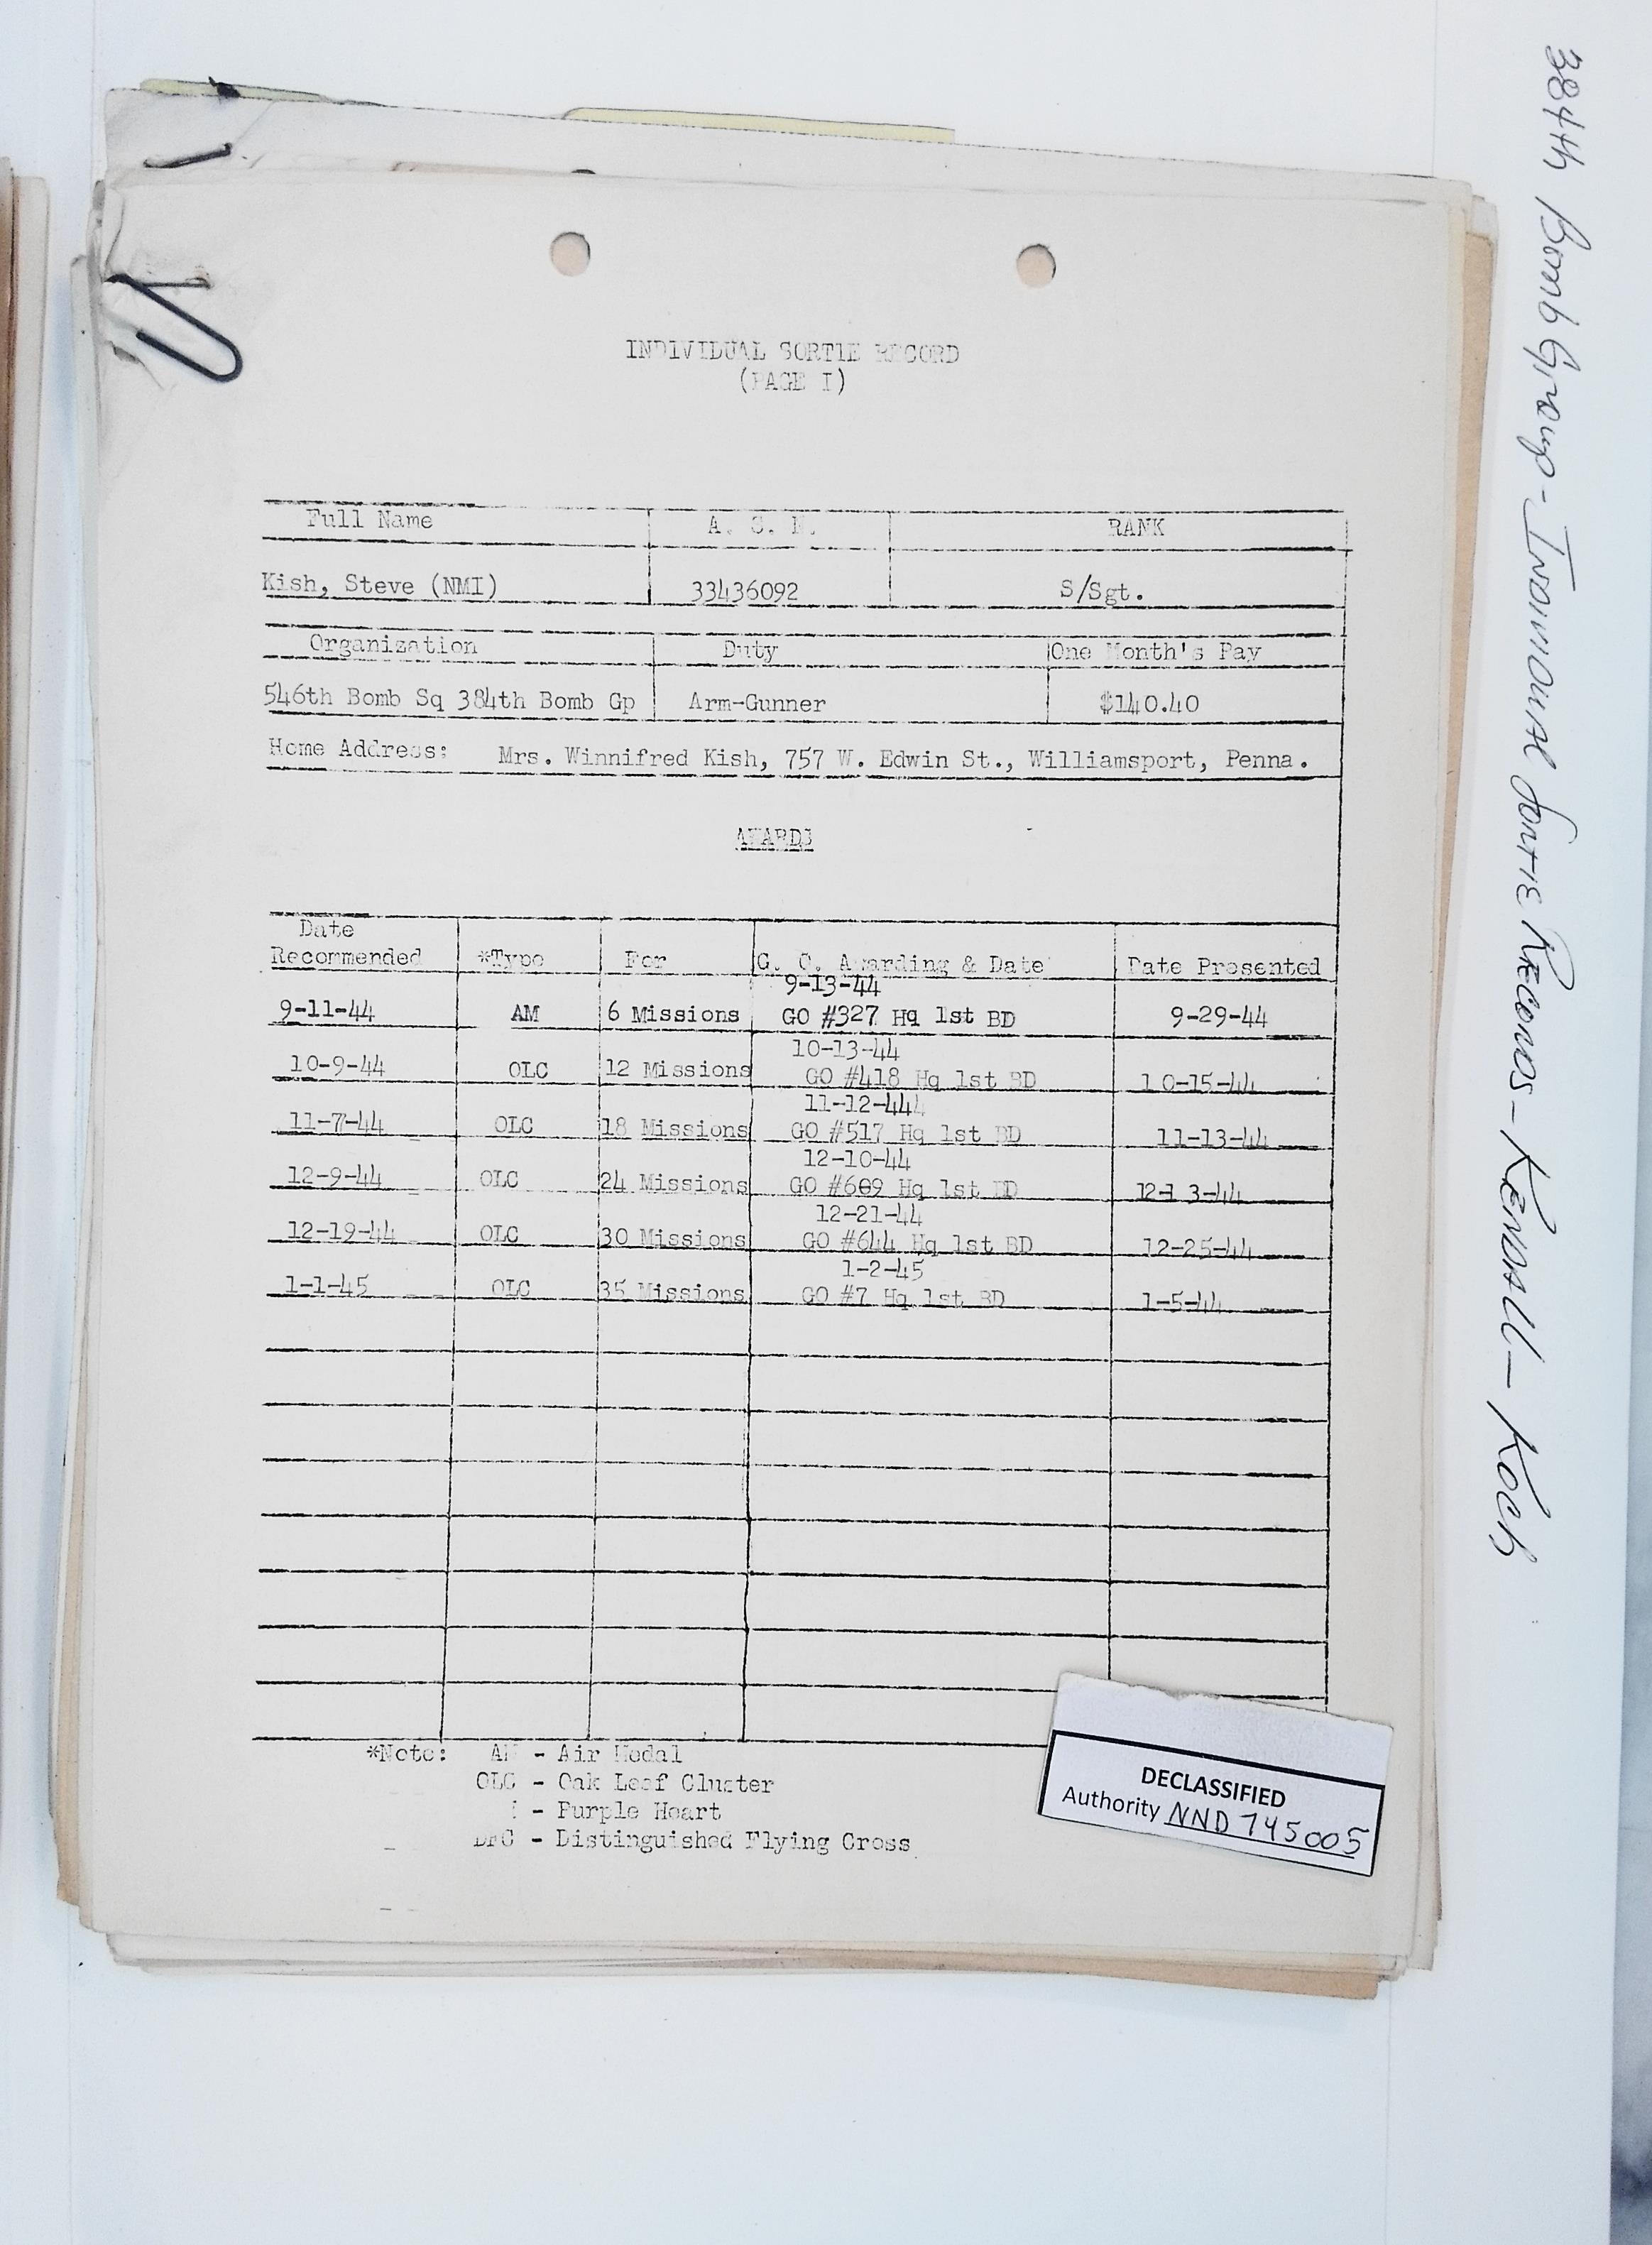 INDIVIDUAL SORTIE RECORD
(PAGE I)
Full Name A. S. N. RANK
Kish, Steve (NMI) 33436092 S/Sgt.
Organization Duty One Month's Pay
546th Bomb Sq 384th Bomb Gp Arm-Gunner $140.40
Home Address: Mrs. Winnifred Kish, 757 W. Edwin St., Williamsport, Penna.
AWARDS
Date
Recommended *Type For G. O. Awarding & Date Date Presented
9-13-44
9-11-44 AM 6 Missions GO #327 Hq 1st BD 9-29-44
10-13-44
10-9-44 OLC 12 Missions GO #418 Hq 1st BD 10-15-44
11-12-444
11-7-44 OLC 18 Missions GO #517 Hq 1st BD 11-13-44
12-10-44
12-9-44 OLC 24 Missions GO #609 Hq 1st BD 12-13-44
12-21-44
12-19-44 OLC 30 Missions GO #644 Hq 1st BD 12-25-44
1-2-45
1-1-45 OLC 35 Missions GO #7 Hq 1st BD 1-5-44
*Note: AM - Air Medal
OLC - Oak Leaf Cluster
- Purple Heart
DFC - Distinguished Flying Cross
DECLASSIFIED
Authority NND 745005
384th Bomb Group - Individual Sortie Records - Kendall - Koch